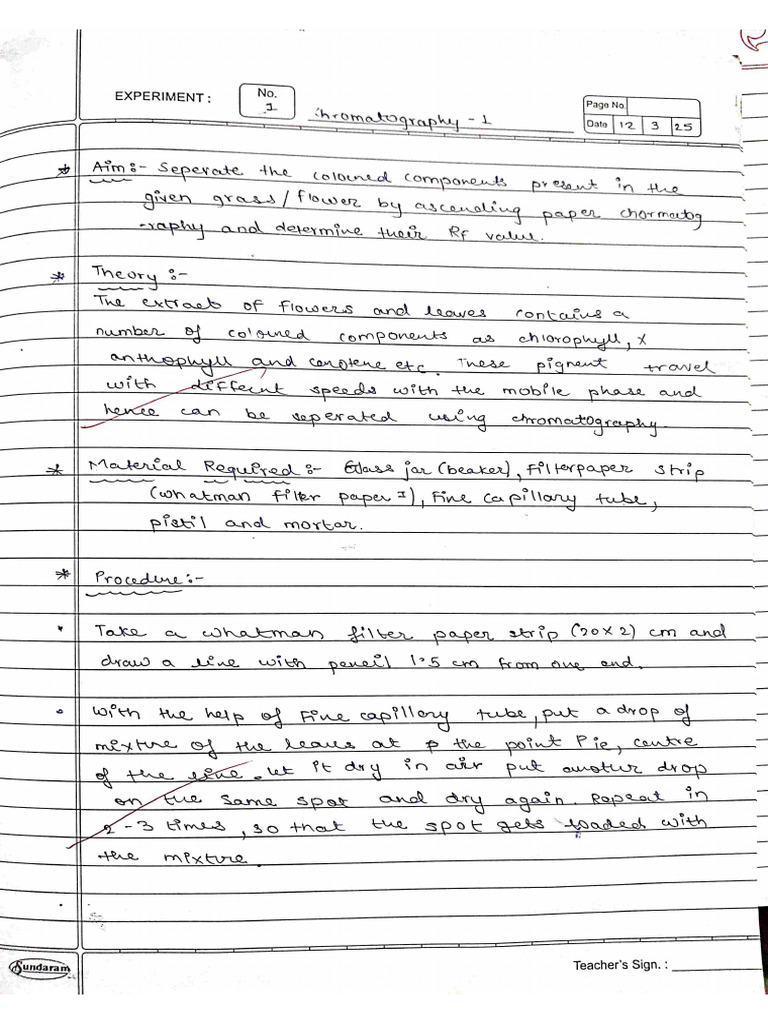 EXPERIMENT : No. 1 Chromatography - 1 Page No.
Date 12 3 25
* Aim:- Seperate the coloured components present in the
given grass/flower by ascending paper chormatog
-raphy and determine their Rf value.
* Theory :-
The extract of flowers and leaves contains a
number of coloured components as chlorophyll, x
anthophyll and carotene etc. These pigment travel
with different speeds with the mobile phase and
hence can be seperated using chromatography.
* Material Required :- Glass jar (beaker), filterpaper strip
(whatman filter paper I), Fine capillary tube,
pistil and mortar.
* Procedure:-
• Take a whatman filter paper strip (20 x 2) cm and
draw a line with pencil 1.5 cm from one end.
• With the help of fine capillary tube, put a drop of
mixture of the leaves at p the point P ie, centre
of the line. let it dry in air put another drop
on the same spot and dry again. Repeat in
2-3 times, so that the spot gets loaded with
the mixture.
Sundaram
Teacher's Sign. :